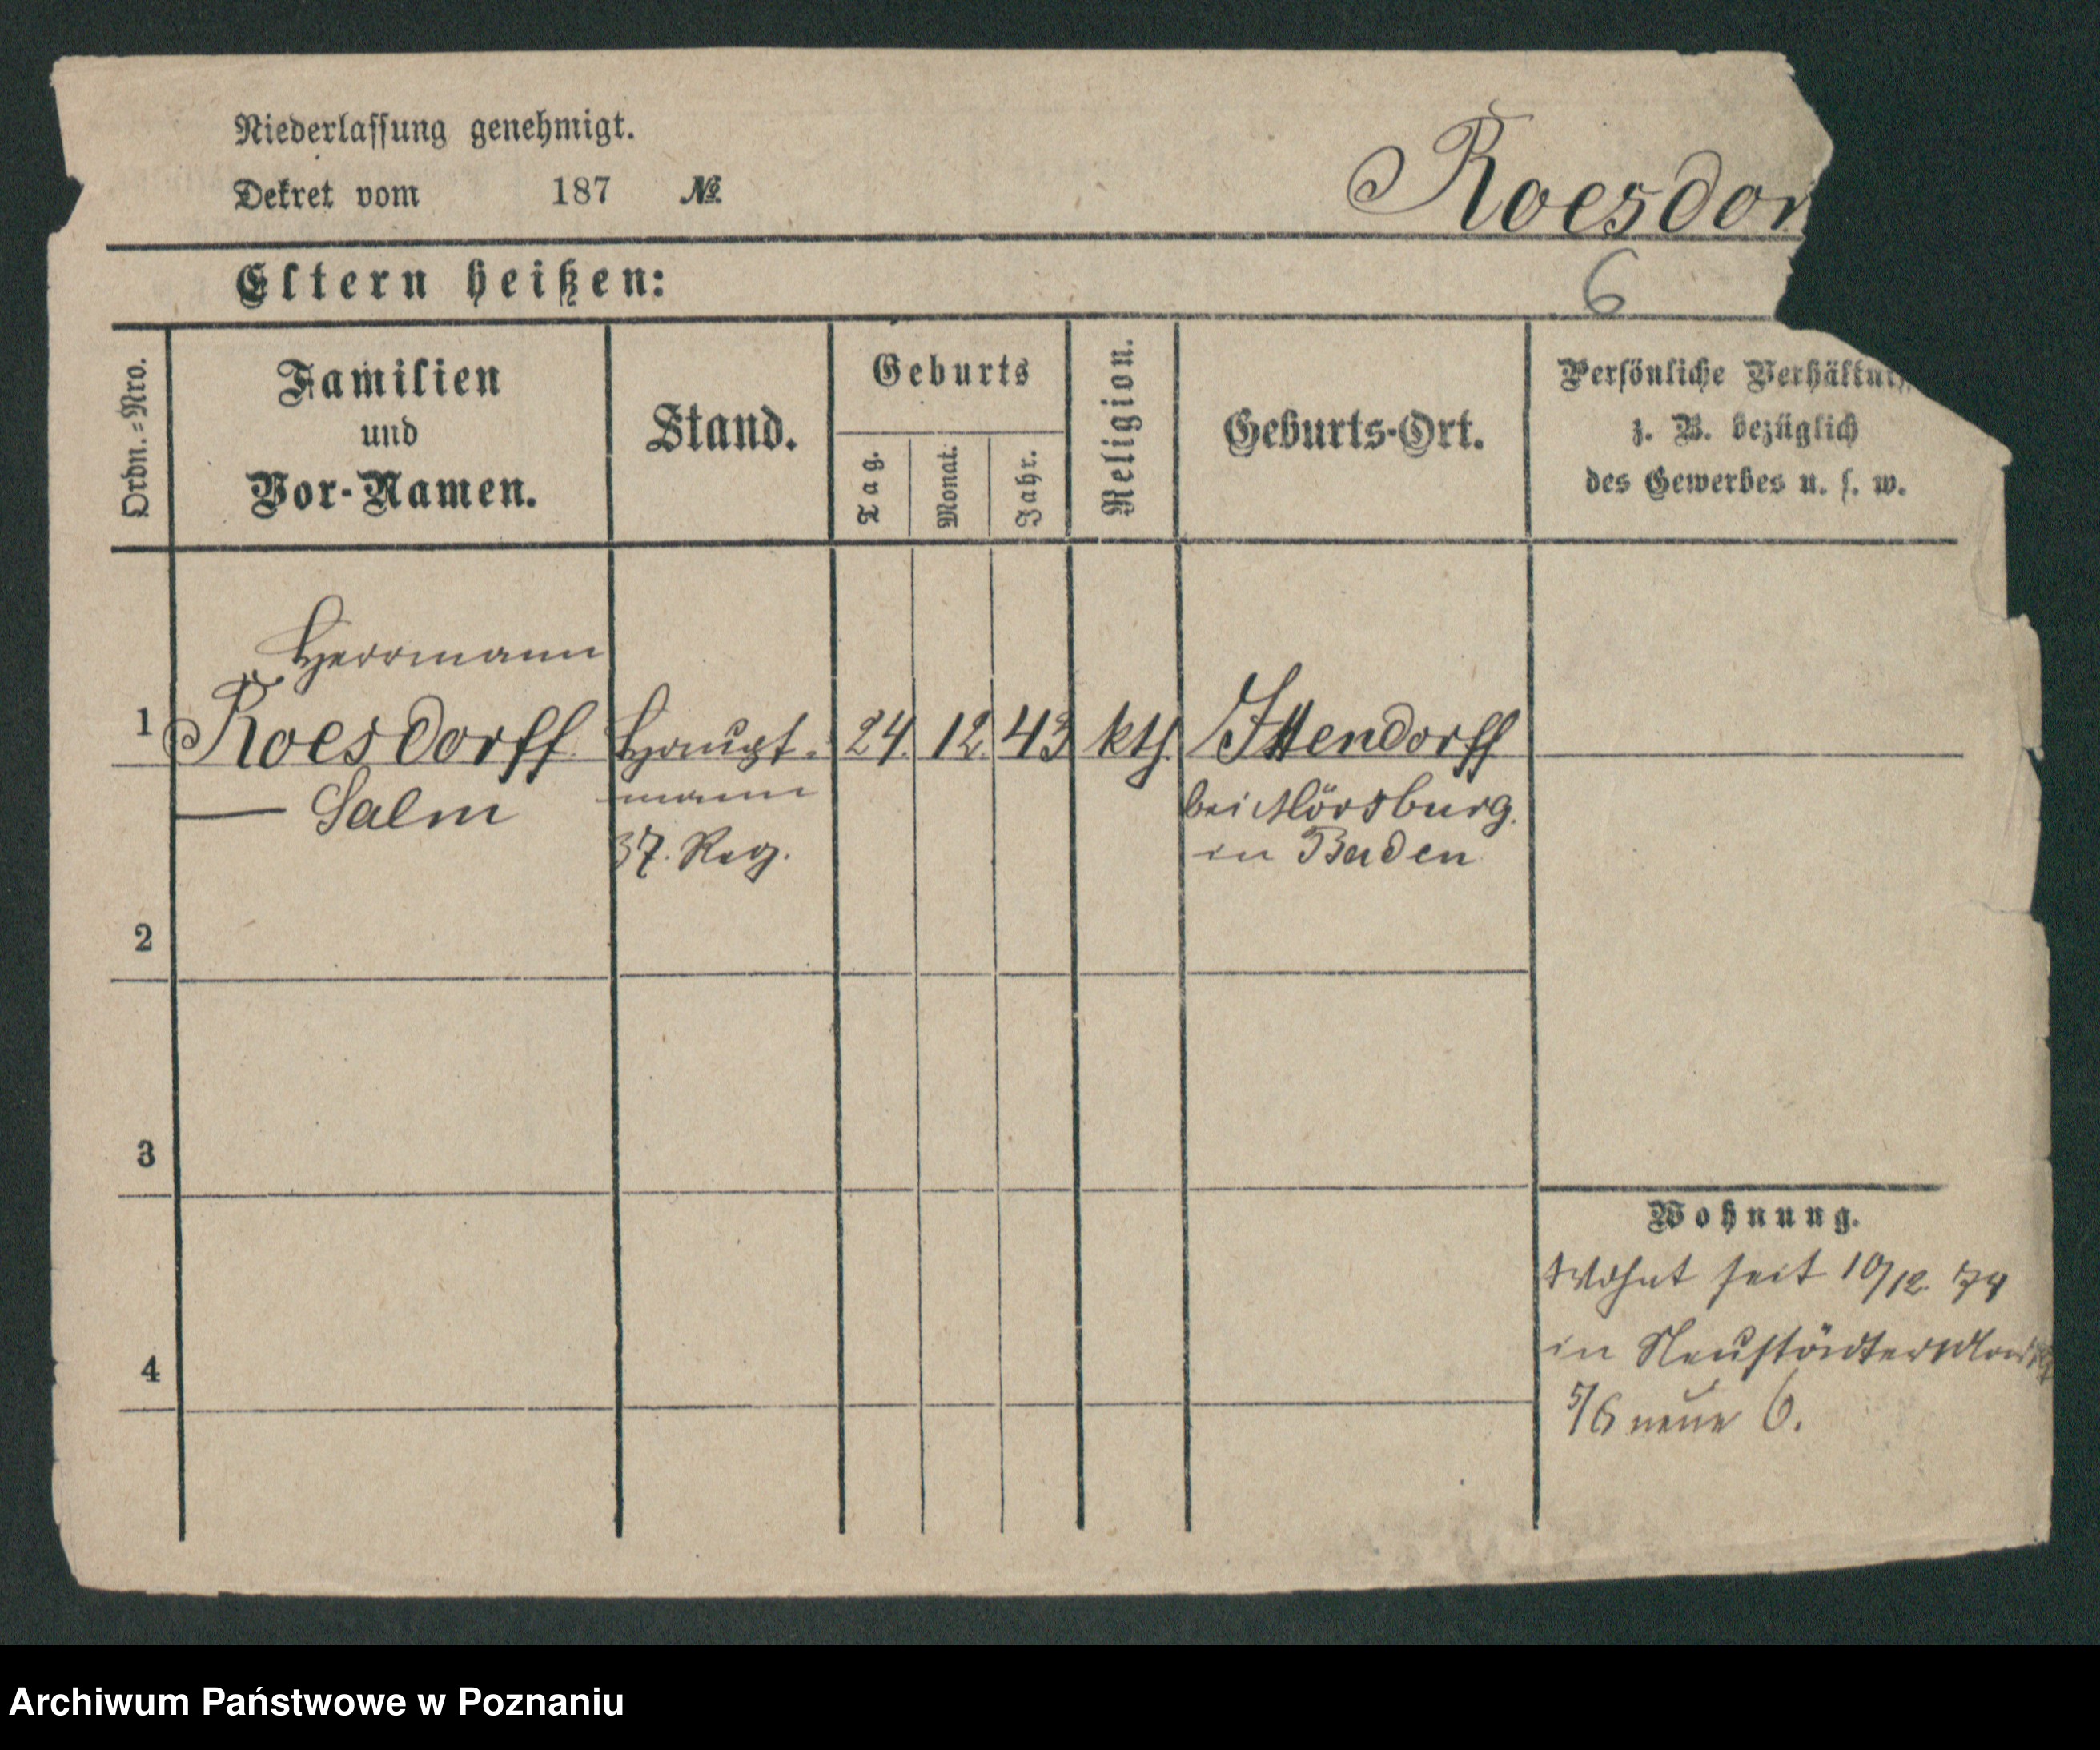 Niederlassung genehmigt.
Dekret vom 187 №
Roesdor
Eltern heißen:
6
Ordn.=Nro.
Familien
und
Vor-Namen.
Stand.
Geburts
Tag.
Monat.
Jahr.
Religion.
Geburts-Ort.
Persönliche Verhältnis
z. B. bezüglich
des Gewerbes u. s. w.
Herrmann
1 Roesdorff Haupt- 24. 12. 43 kth. Ittendorff
— Salm mann bei Mörsburg.
37. Reg. in Baden
2
3
Wohnung.
Wohnt seit 10/12. 74
in Neustädter
4
5/6 neue 6.
Archiwum Państwowe w Poznaniu